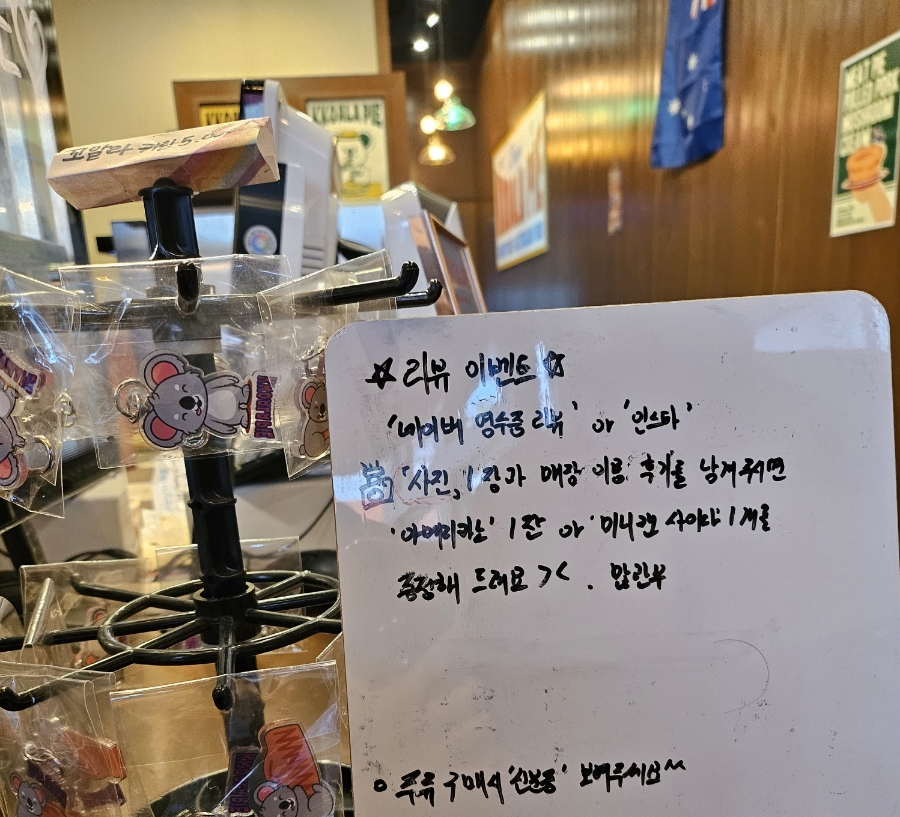 KKOALA PIE
MEAT PIE
☆ 리뷰 이벤트 ☆
'네이버 영수증 리뷰' or '인스타'
'사진, 1장과 매장 이용 후기를 남겨주시면
'아메리카노' 1잔 or '미니캔 사이다' 1개를
증정해 드려요 ><
○ 주류 구매시 '신분증' 보여주세요^^